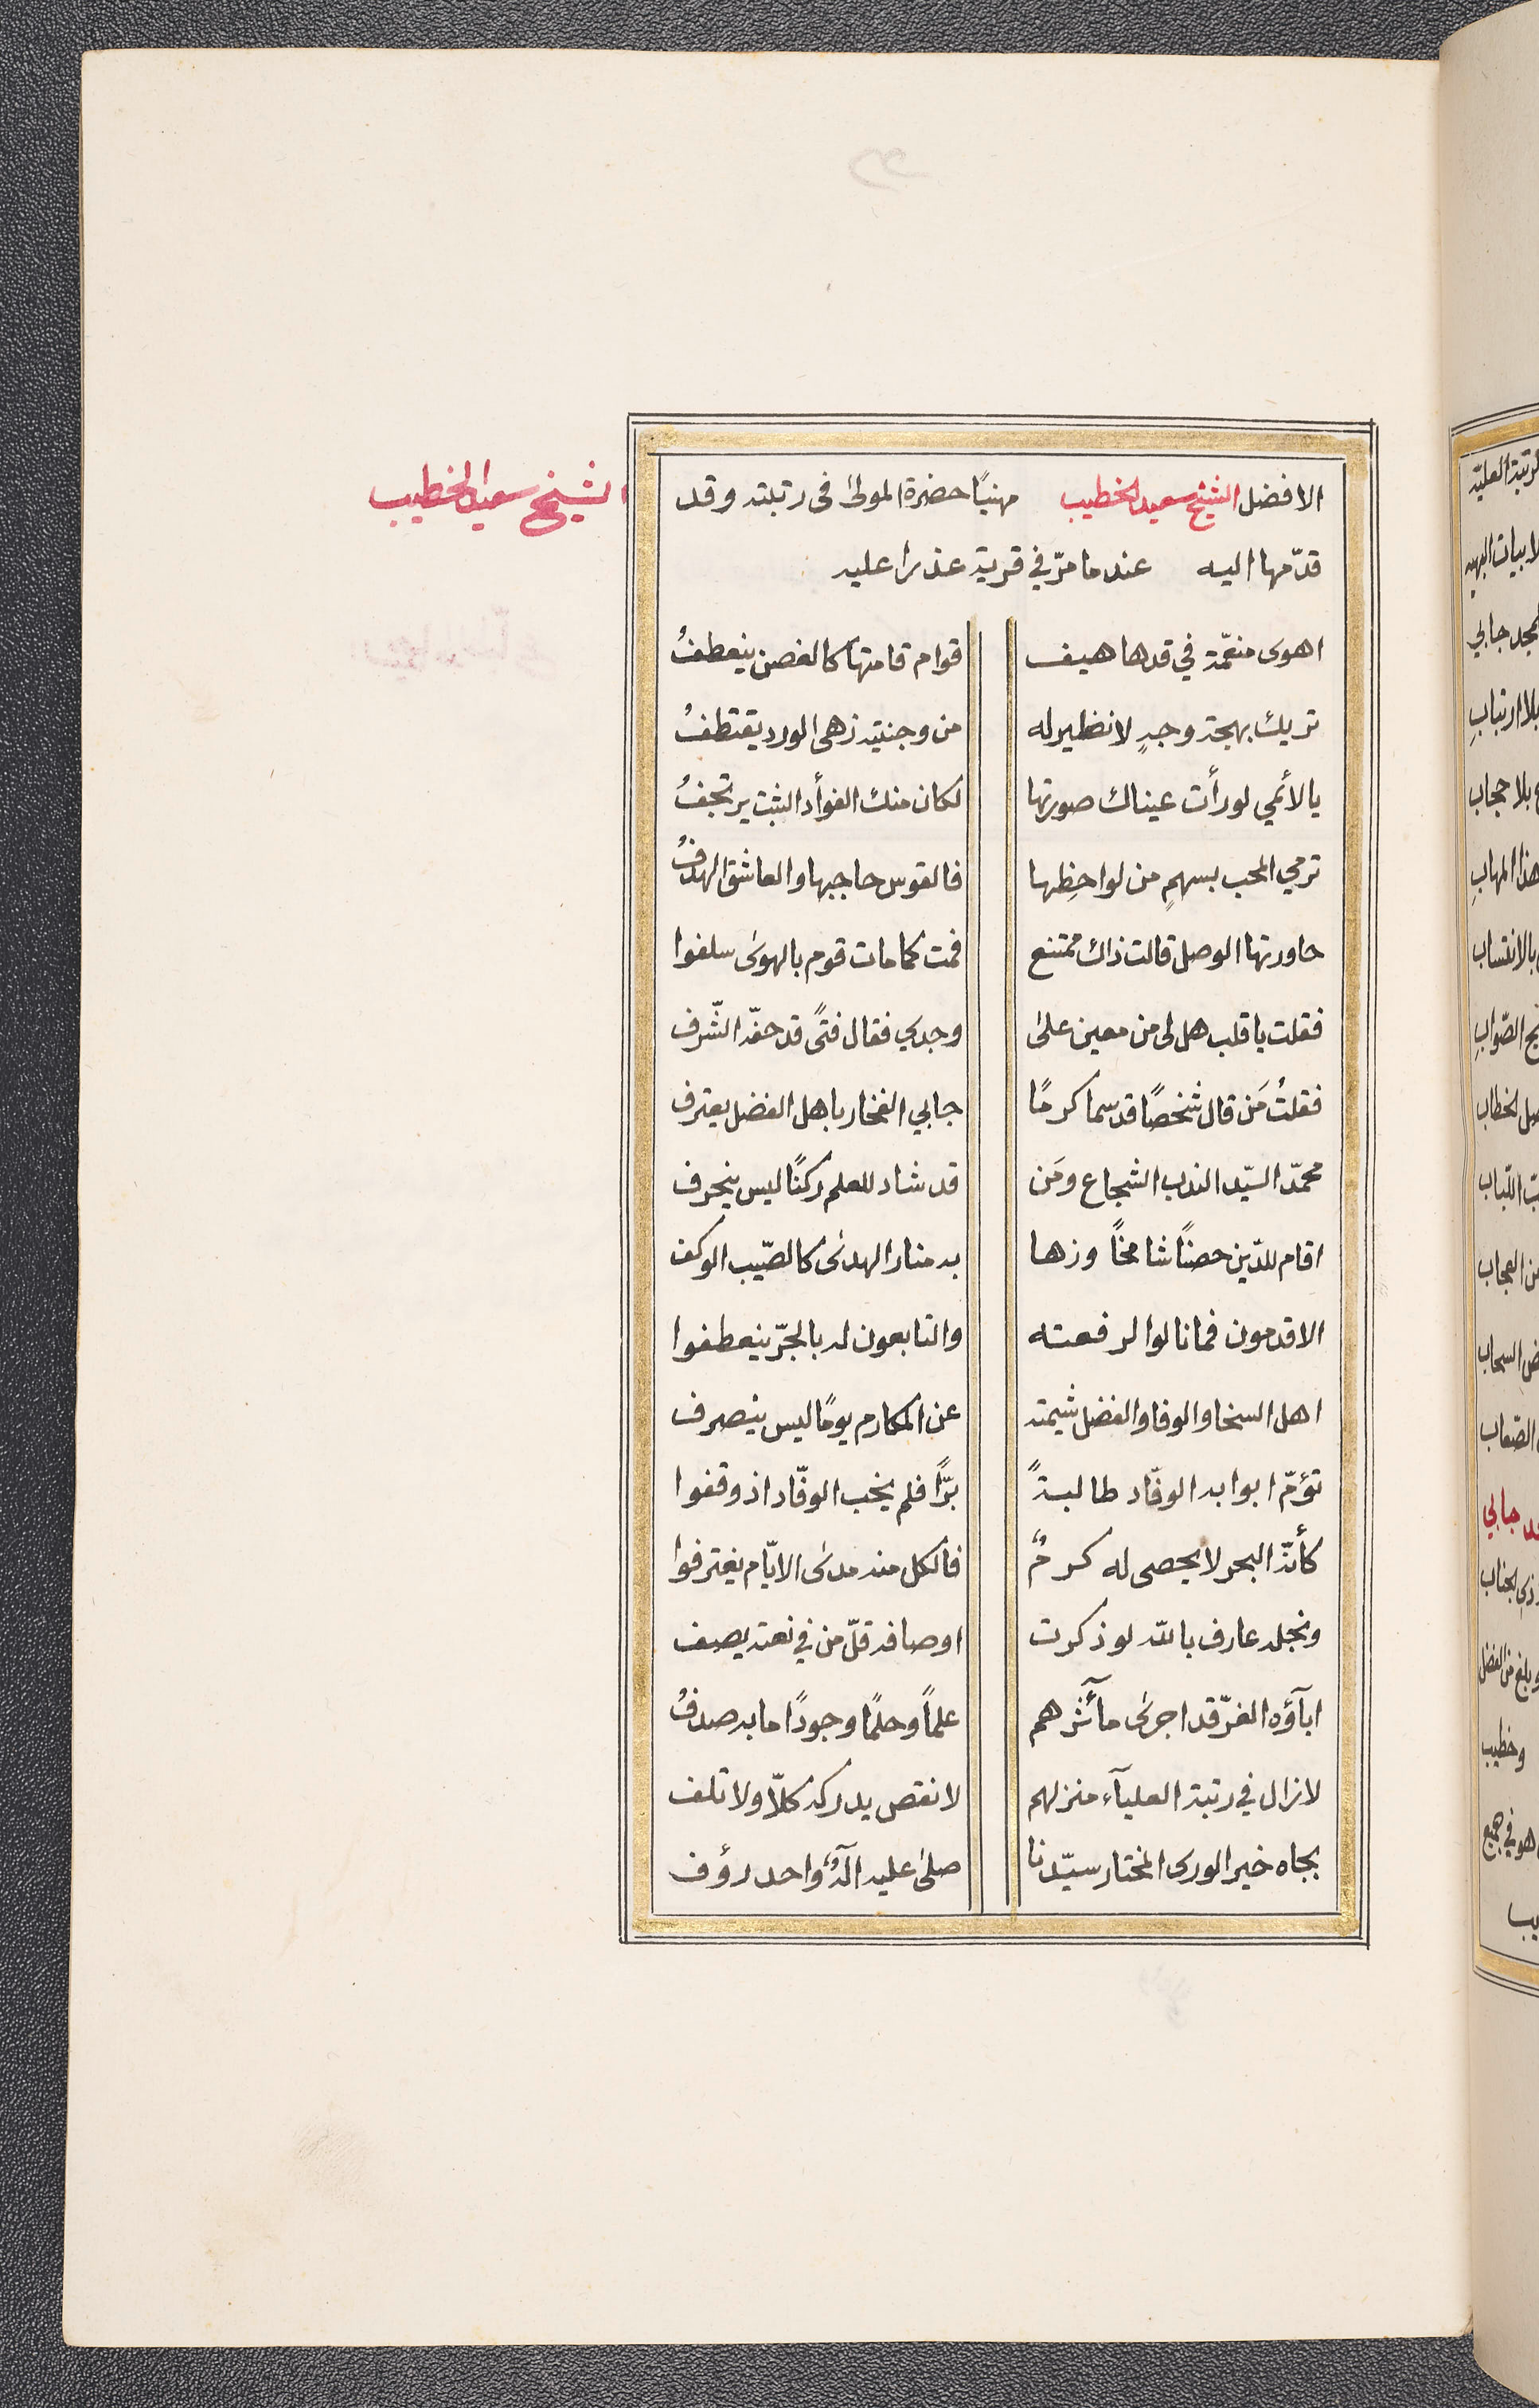 الشيخ سعيد الخطيب
الافضل الشيخ سعيد الخطيب مهنيًا حضرة المولى فى رتبته وقد
قدّمها اليه عندما مرّ في قرية عذرا عليه
اهوى منعّمة في قدها هيف قوام قامتها كالغصن ينعطفُ
تريك بهجة وجهٍ لا نظير له من وجنتيه زهى الورد يقتطفُ
يا لأئمي لو رأت عيناك صورتها لكان منك الفوأد الثبت يرتجفُ
ترمي المحب بسهمٍ من لواحظِها فالقوس حاجبها والعاشق الهدفُ
حاورتها الوصل قالت ذاك ممتنع فمت كما مات قوم بالهوى سلفوا
فقلت يا قلب هل لى من معين على وجدي فقال فتًى قد حفّه الشّرف
فقلتُ مَن قال شخصًا قد سما كرمًا جابي الفخار باهل الفضل يعترف
محمّد السيّد الندب الشجاع ومَن قد شاد للعلم ركنًا ليس ينحرف
اقام للدّين حصنًا شامخًا وزها به منار الهدى كالصّيب الوكف
الاقدمون فما نالوا لرفعته والتابعون له بالجرّ ينعطفوا
اهل السخا والوفا والفضل شيمته عن المكارم يومًا ليس ينصرف
تؤمّ ابوابه الوفّاد طالبةً برًّا فلم يخب الوفّاد اذ وقفوا
كأنّه البحر لا يحصى له كرمٌ فالكل منه مدى الايّام يغترفوا
ونجله عارف بالله لو ذكرت اوصافه قلّ من في نعته يصف
ابآؤه الغرّ قد اجرى مآثرهم علمًا وحلمًا وجودًا ما به صدفُ
لا زال في رتبة العليآء منزلهم لا نقص يدركه كلّا ولا تلف
بجاه خير الورى المختار سيّدنا صلى عليه الٓهٌ واحد رؤف